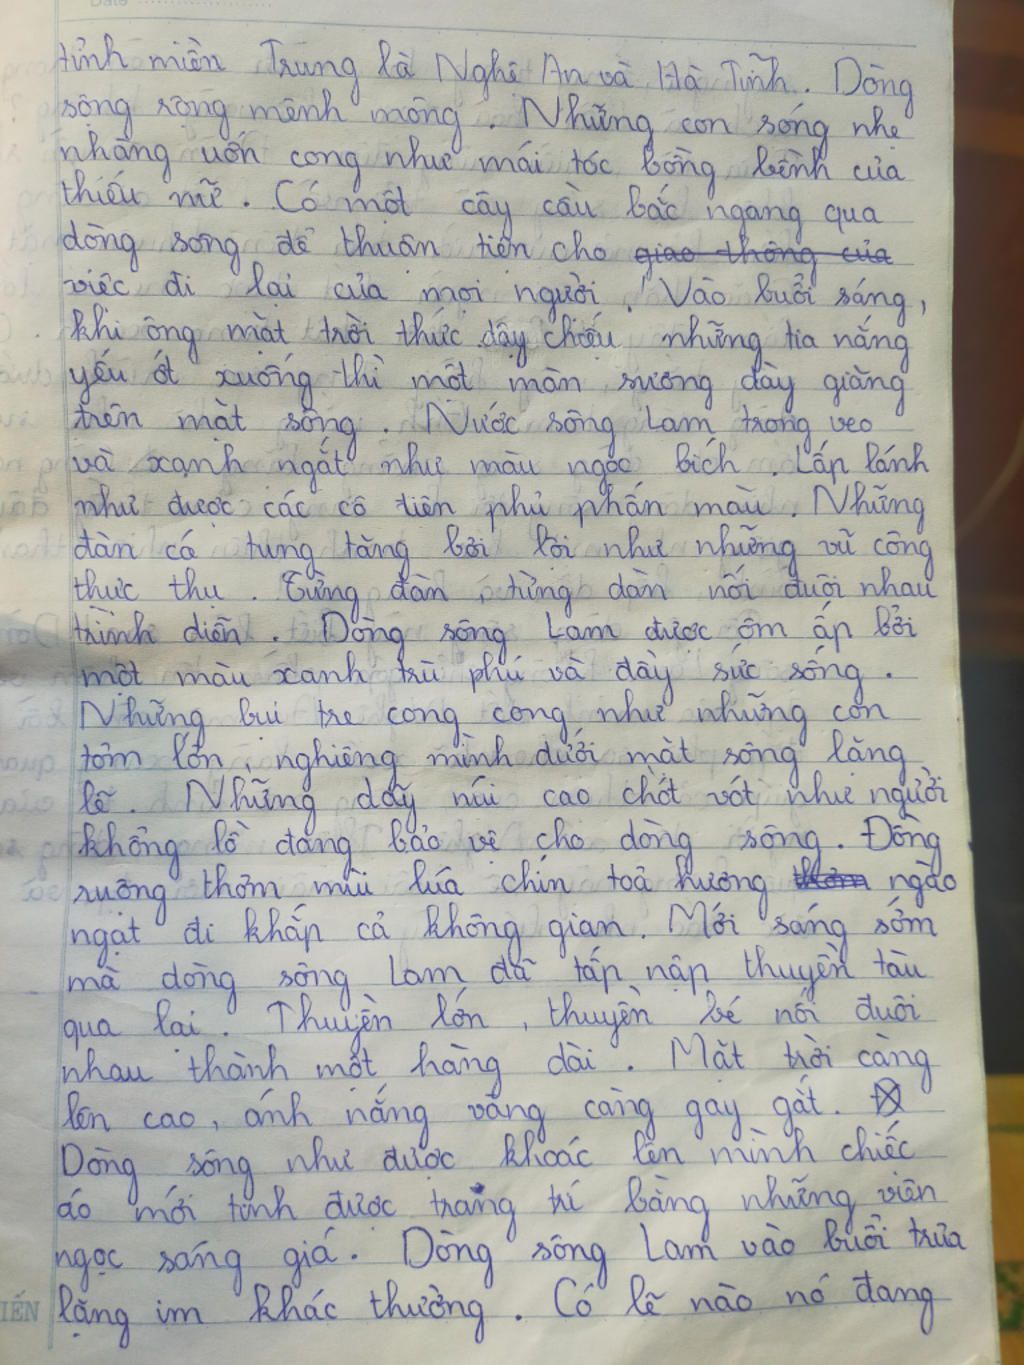 Date
tỉnh miền Trung là Nghệ An và Hà Tĩnh. Dòng
sông rộng mênh mông. Những con sóng nhẹ
nhàng uốn cong như mái tóc bồng bềnh của
thiếu nữ. Có một cây cầu bắc ngang qua
dòng sông để thuận tiện cho giao thông của
việc đi lại của mọi người. Vào buổi sáng,
khi ông mặt trời thức dậy chiếu những tia nắng
yếu ớt xuống thì một màn sương dày giăng
trên mặt sông. Nước sông Lam trong veo
và xanh ngắt như màu ngọc bích. Lấp lánh
như được các cô tiên phủ phấn màu. Những
đàn cá tung tăng bơi lội như những vũ công
thực thụ. Từng đàn, từng đàn nối đuôi nhau
trình diễn. Dòng sông Lam được ôm ấp bởi
một màu xanh trù phú và đầy sức sống.
Những bụi tre cong cong như những con
tôm lớn, nghiêng mình dưới mặt sông lặng
lẽ. Những dãy núi cao chót vót như người
khổng lồ đang bảo vệ cho dòng sông. Đồng
ruộng thơm mùi lúa chín toả hương thơm ngào
ngạt đi khắp cả không gian. Mới sáng sớm
mà dòng sông Lam đã tấp nập thuyền tàu
qua lại. Thuyền lớn, thuyền bé nối đuôi
nhau thành một hàng dài. Mặt trời càng
lên cao, ánh nắng vàng càng gay gắt.
Dòng sông như được khoác lên mình chiếc
áo mới tinh được trang trí bằng những viên
ngọc sáng giá. Dòng sông Lam vào buổi trưa
lặng im khác thường. Có lẽ nào nó đang
IẾN